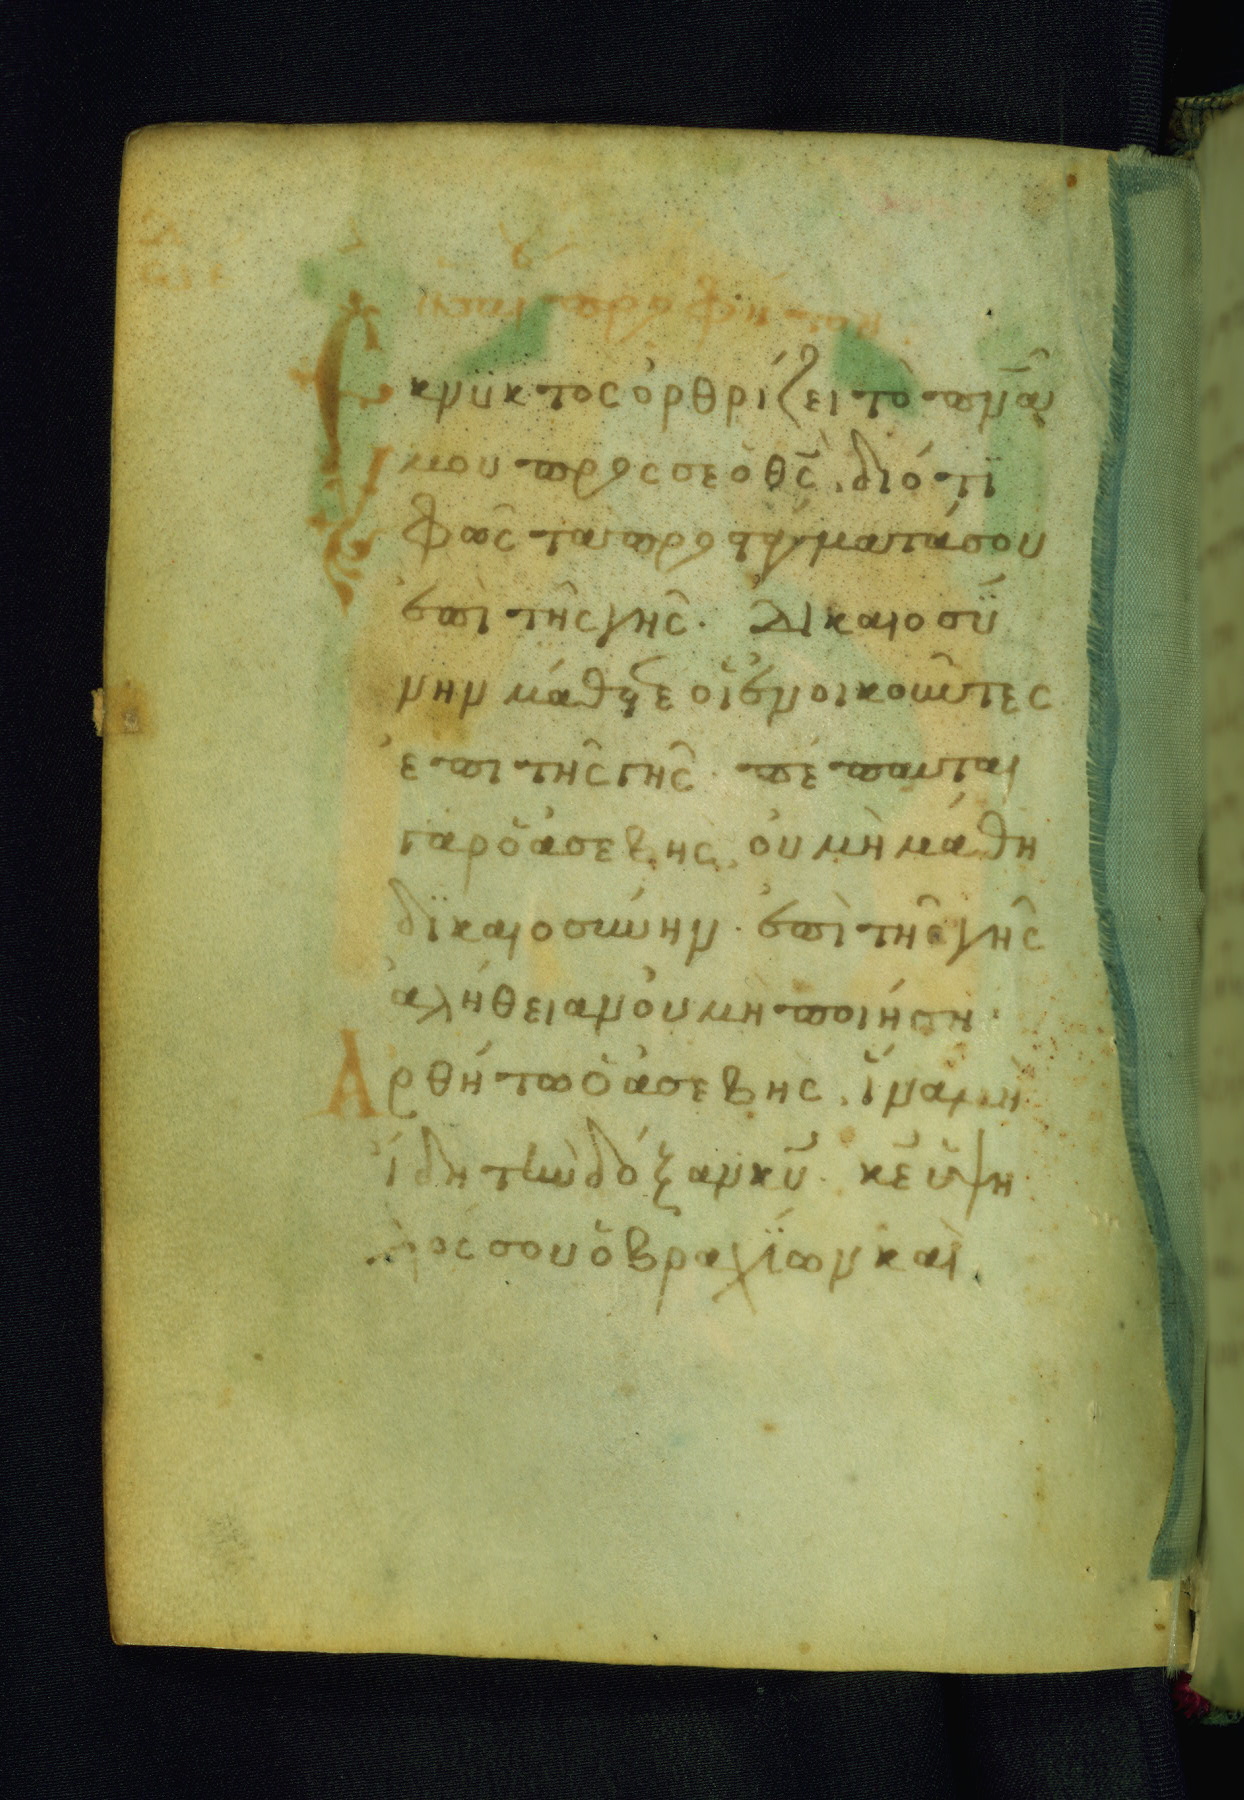 Ἐκ νϋκτος ὀρθρίζει το πν̅ά
μου προς σε ὁ θς̅. διότι
φῶς τα προστάγματά σου
ἐπὶ τῆς γῆς. Δικαιοσύ
νην μάθετε οἱ ἐνοικοῦντες
ἐπι τῆς γῆς. πέπαυται
γαρ ὁ ἀσεβης, ὀυ μὴ μάθη
δϊκαιοσύνην. ἐπὶ τῆς γῆς
ἀλήθειαν ὀυ μὴ ποιήση.
Ἀρθήτω ὁ ἀσεβης, ἵνα μὴ
ἴδη την δόξαν κυ̅. κε̅ ὑψη
λός σου ὁ βραχΐων και